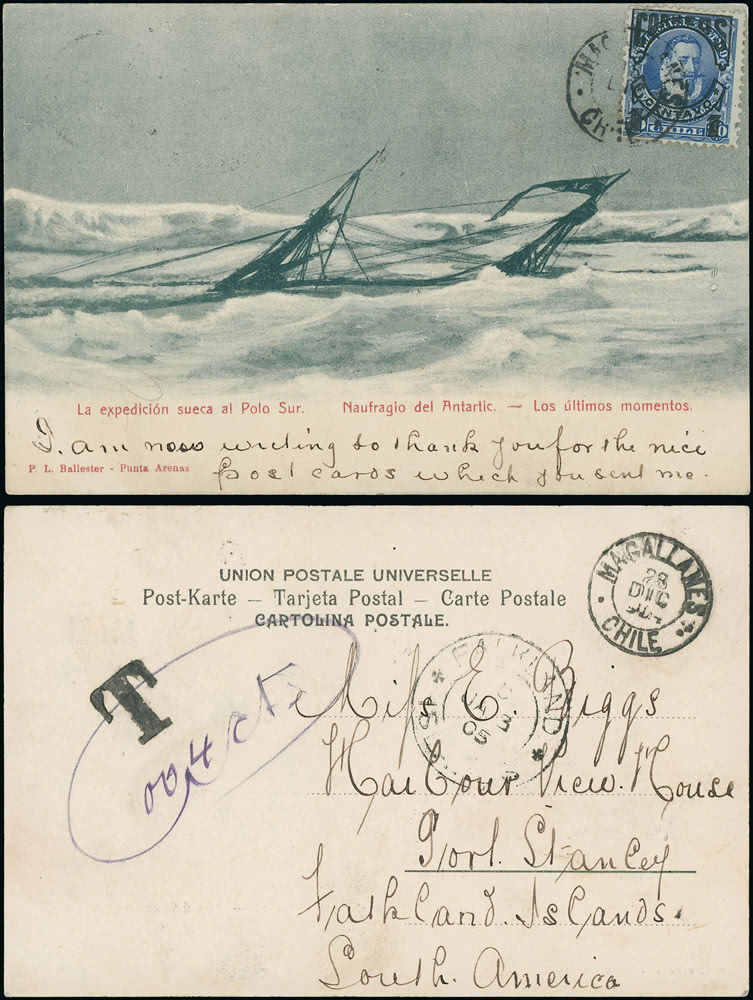 CORREOS
CENTAVOS
CHILE
La expedición sueca al Polo Sur. Naufragio del Antartic. — Los últimos momentos.
I. am now writing to thank you for the nice
P. L. Ballester - Punta Arenas
Post cards which you sent me.
UNION POSTALE UNIVERSELLE
Post-Karte — Tarjeta Postal — Carte Postale
CARTOLINA POSTALE.
MAGALLANES
28
CHILE
T
FALKLAND
05
Miss E. Biggs
Harbour View House
Port. Stanley
Falkland Islands.
South. America